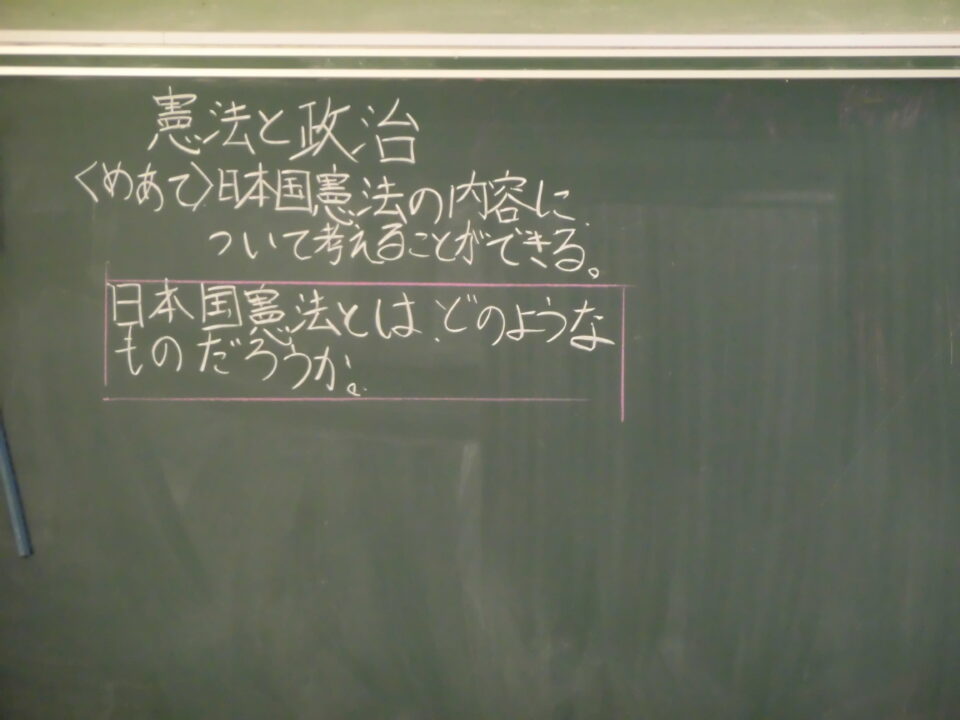 憲法と政治
〈めあて〉日本国憲法の内容に
ついて考えることができる。
日本国憲法とは、どのような
ものだろうか。